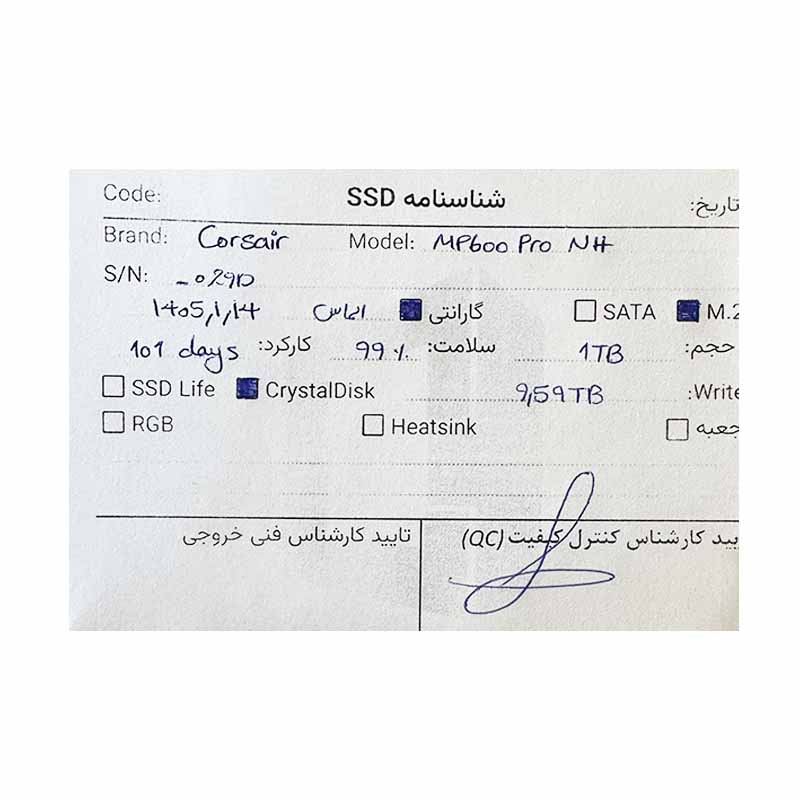 Code: شناسنامه SSD تاریخ:
Brand: Corsair Model: MP600 Pro NH
S/N: -029D
M.2 SATA گارانتی الماس 1405/1/14
حجم: 1TB سلامت: 99% کارکرد: 101 days
Write: 9,59TB CrystalDisk SSD Life
جعبه Heatsink RGB
کارشناس کنترل کیفیت (QC) تایید کارشناس فنی خروجی